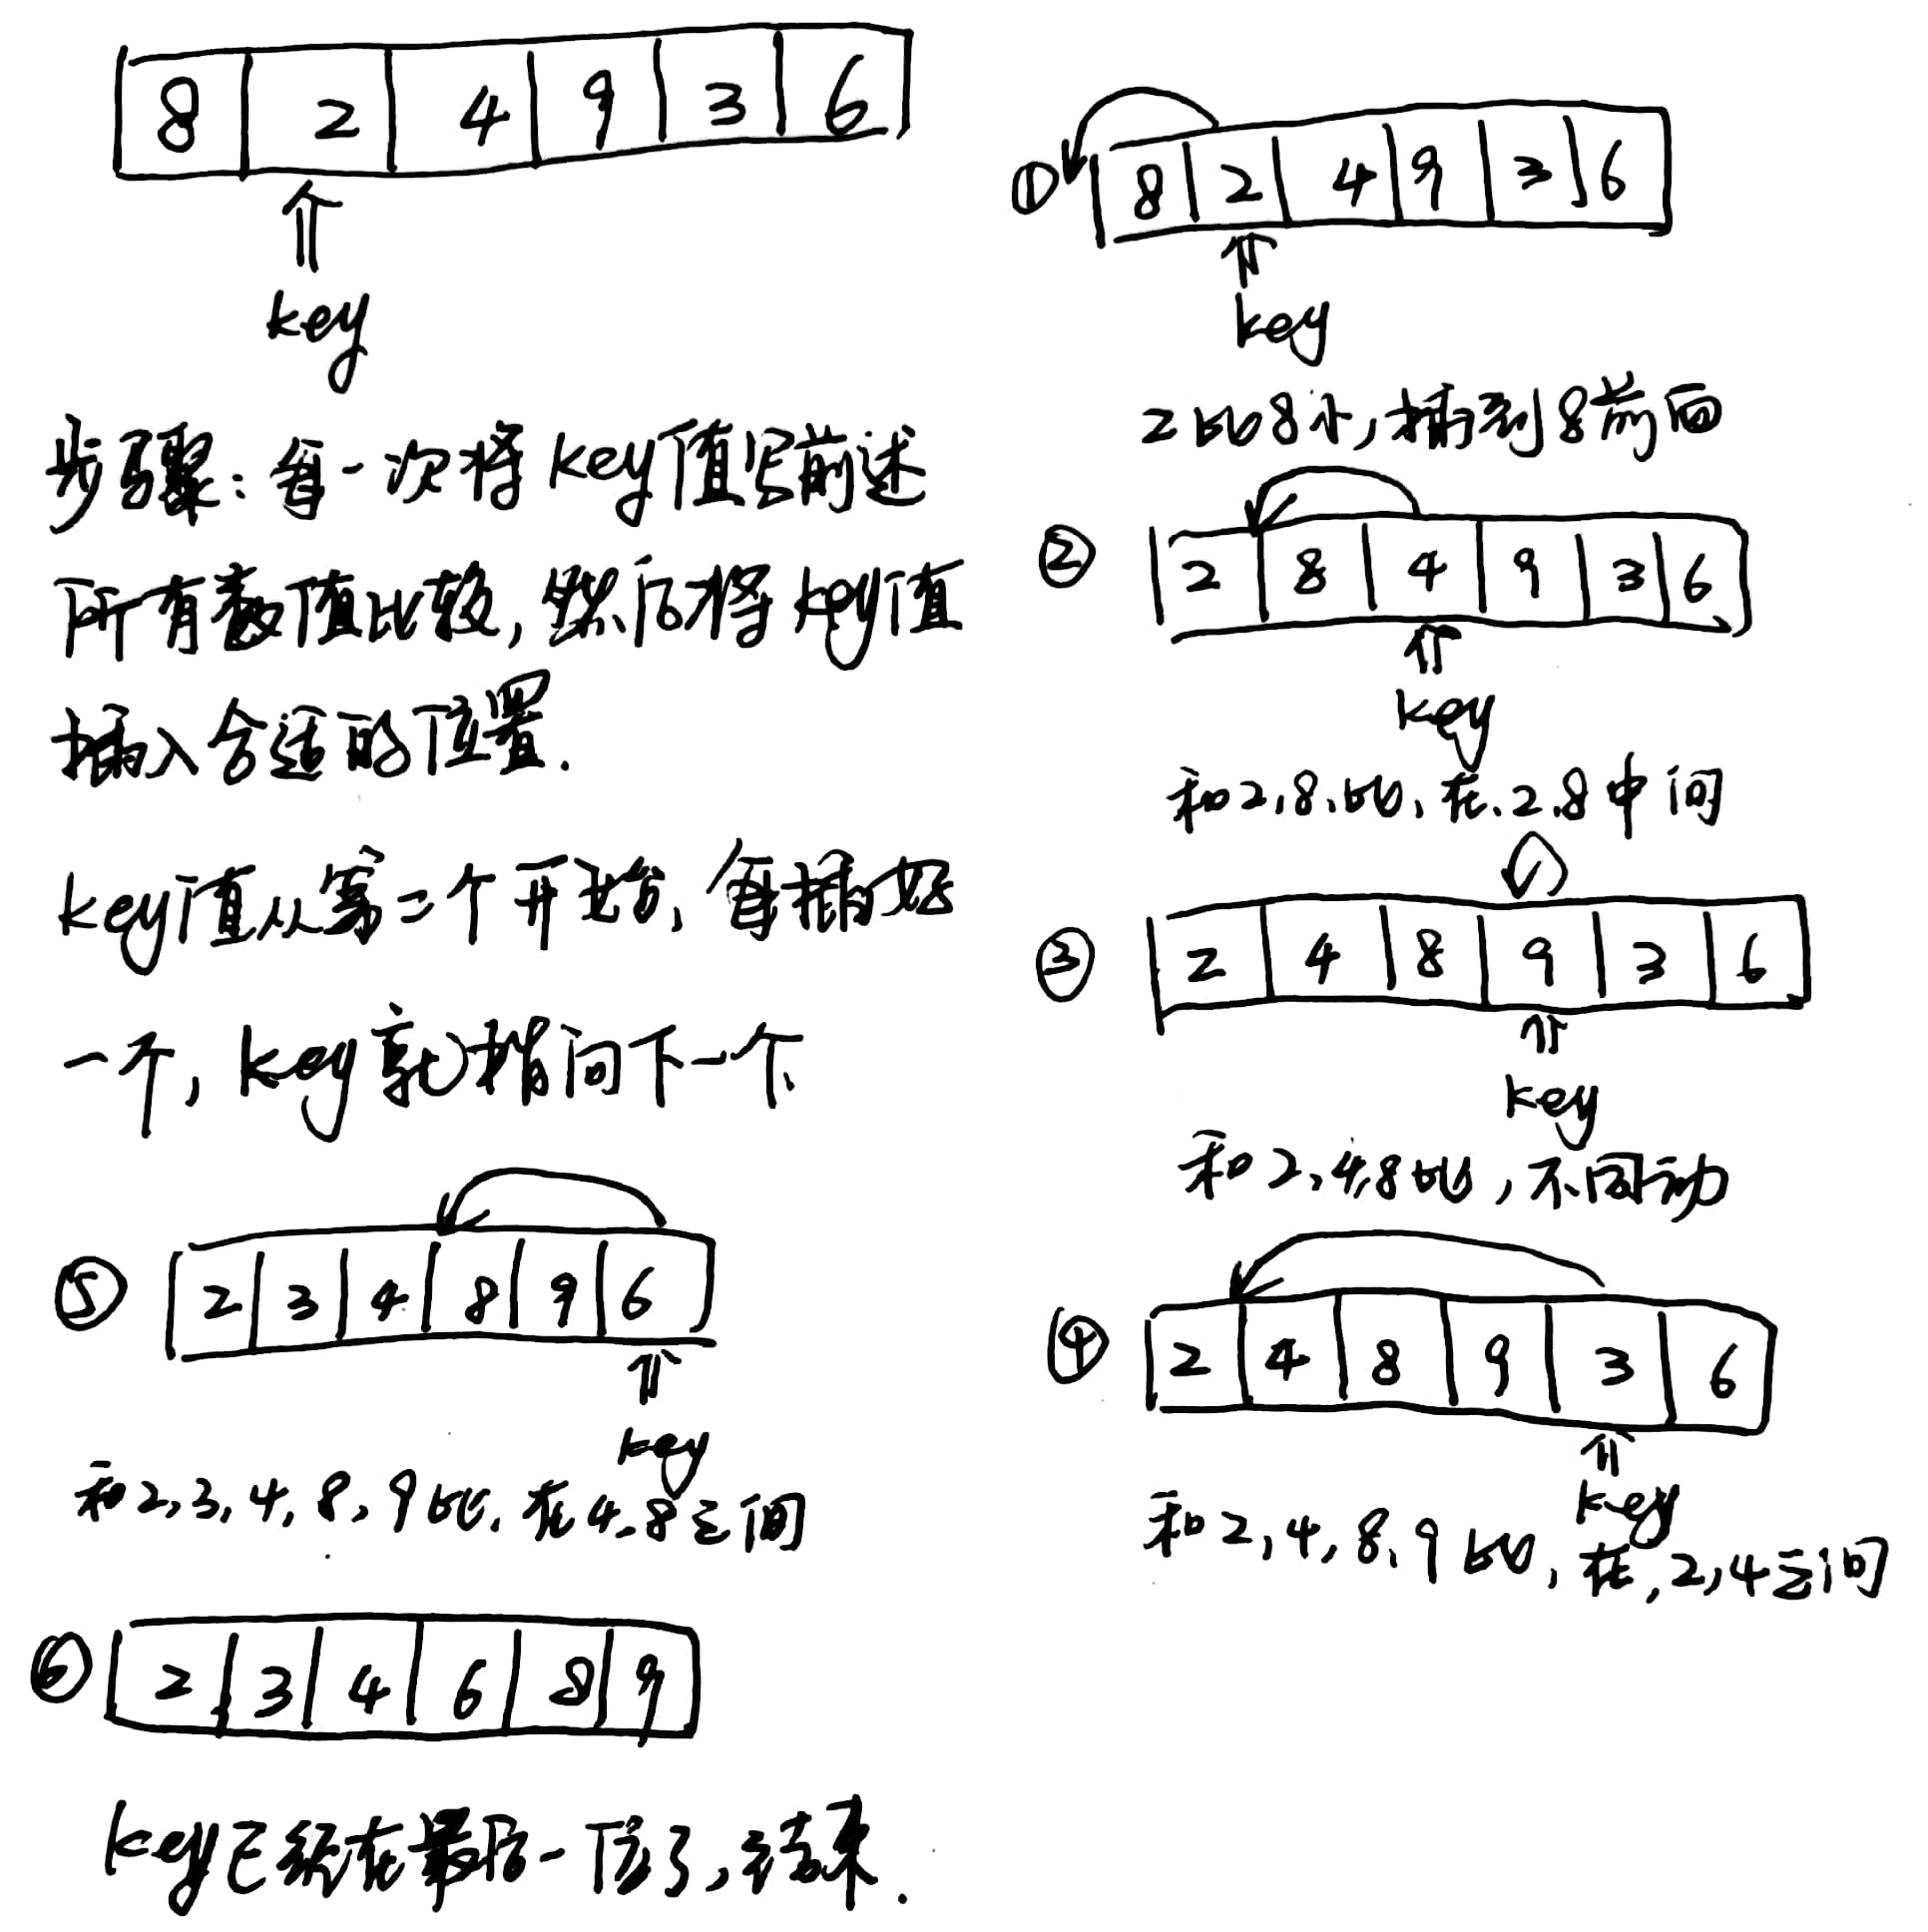 8 2 4 9 3 6
key
步骤：每一次将key值与前述
所有数值比较，然后将key值
插入合适的位置.
key值从第二个开始，每插好
一个，key就指向下一个.
① 8 2 4 9 3 6
key
2比8小，插到8前面
② 2 8 4 9 3 6
key
和2,8,比,在.2.8中间
③ 2 4 8 9 3 6
key
和2,4,8比，不用动
④ 2 4 8 9 3 6
key
和2,4,8,9比,在,2,4之间
⑤ 2 3 4 8 9 6
key
和2,3,4,8,9比.在4.8之间
⑥ 2 3 4 6 8 9
key已经在最后一位了,结束.